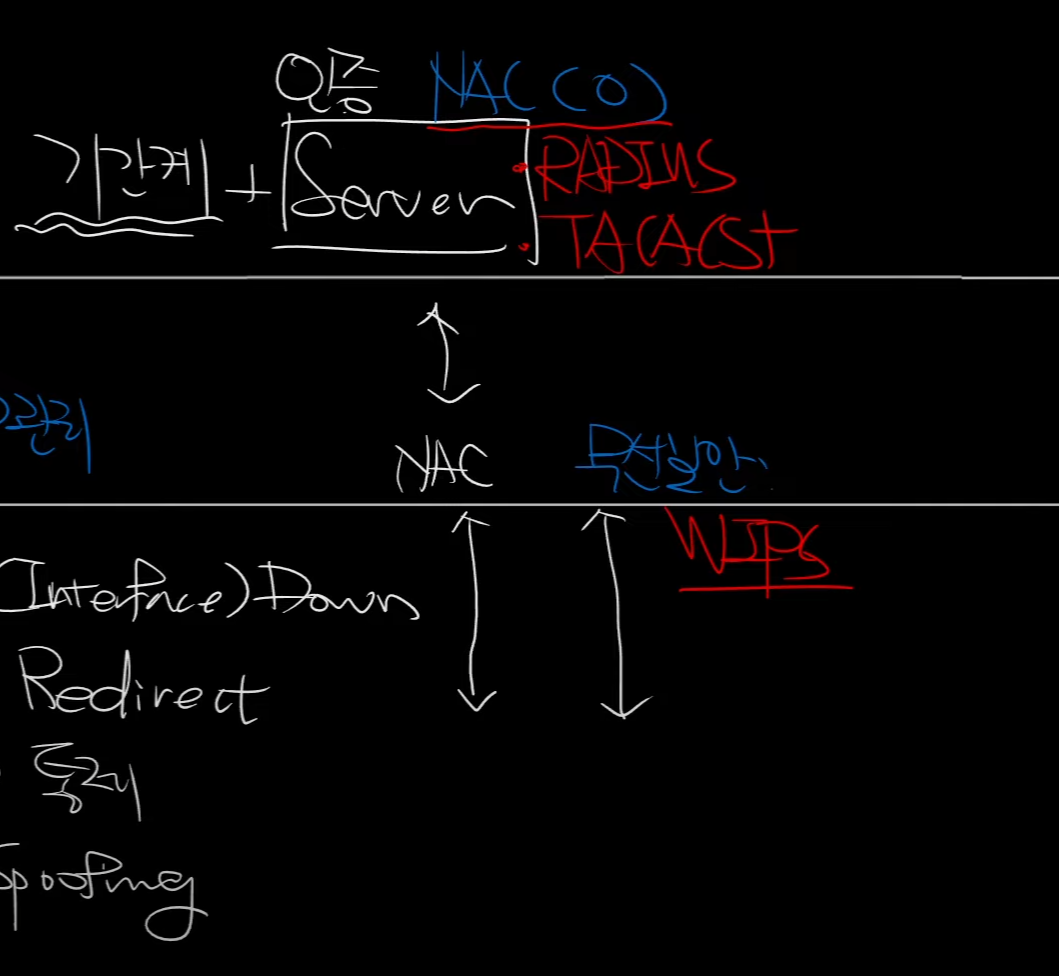 인증 NAC(O)
기간계 + Server
RADIUS
TACACS+
관리
NAC 무선보안
WIPS
(Interface) Down
Redirect
통제
Spoofing